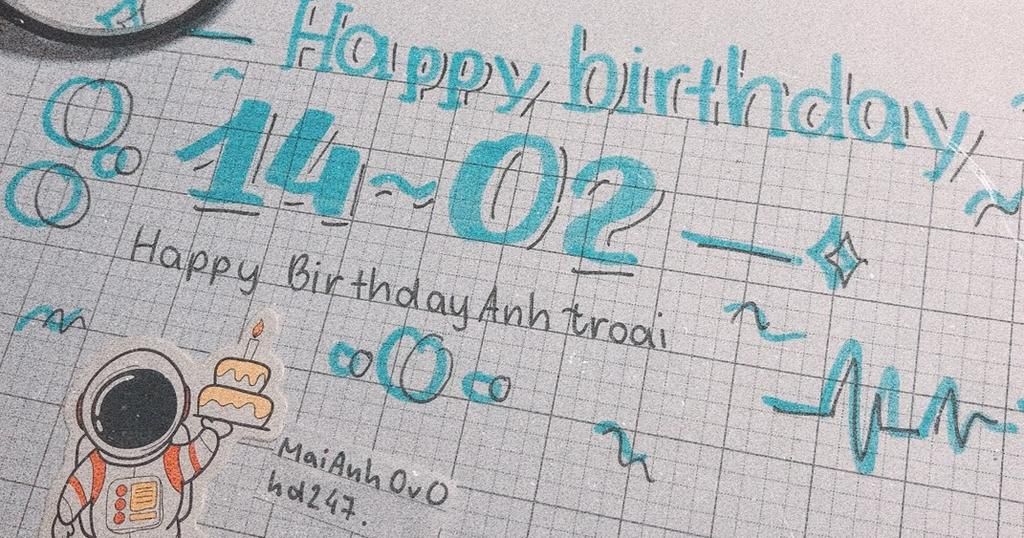 Happy birthday
14~02
Happy Birthday Anh troai
MaiAnh OvO
hd247.